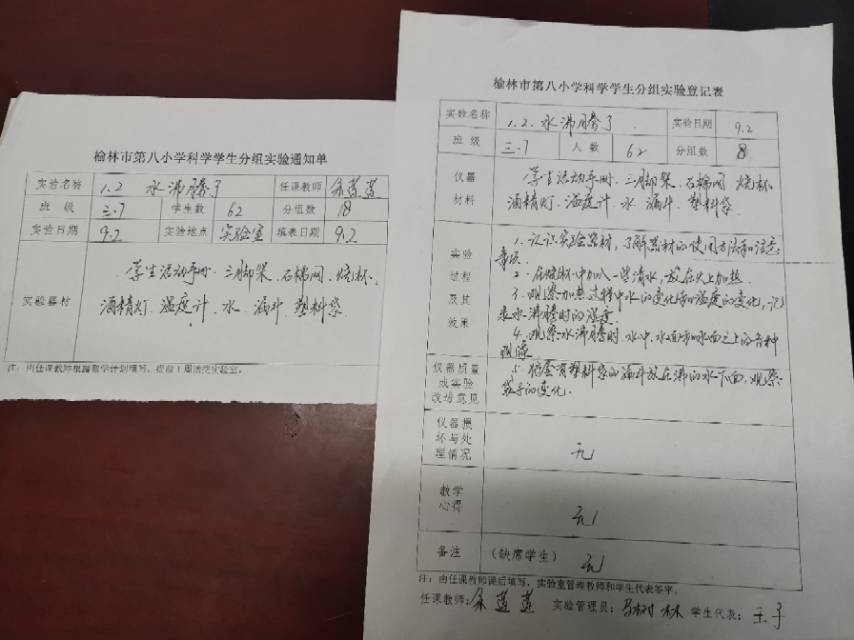 榆林市第八小学科学学生分组实验通知单
实验名称 1.2 水沸腾了 任课教师
班 级 三.7 学生数 62 分组数 18
实验日期 9.2 实验地点 实验室 填表日期 9.2
实验器材
学生活动手册、三脚架、石棉网、烧杯、
酒精灯、温度计、水、漏斗、塑料袋
注：由任课教师根据教学计划填写，提前1周送交实验室。
榆林市第八小学科学学生分组实验登记表
实验名称 1.2.水沸腾了 实验日期 9.2
班 级 三.7 人 数 62 分组数 8
仪器
材料
学生活动手册、三脚架、石棉网、烧杯
酒精灯、温度计、水、漏斗、塑料袋
实验
过程
及其
效果
1. 认识实验器材，了解器材的使用方法和注意
事项
2. 在烧杯中加入一些清水，放在火上加热
3. 观察加热过程中水的变化和温度的变化，记
录水沸腾时的温度
4. 观察水沸腾时，水中、水面和水面之上的各种
现象
仪器质量
或实验
改进意见
5. 将套有塑料袋的漏斗放在沸的水下面，观察
袋子的变化.
仪器损
坏与处
理情况
无
教学
心得
无
备注 (缺席学生) 无
注：由任课教师课后填写，实验室管理教师和学生代表签字。
任课教师： 实验管理员： 学生代表：王子